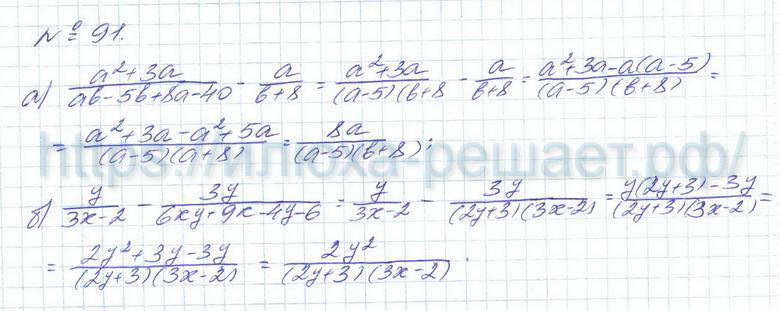 № 91.
а) (a²+3a)/(ab-5b+8a-40) - a/(b+8) = (a²+3a)/((a-5)(b+8) - a/(b+8) = (a²+3a-a(a-5))/((a-5)(b+8)) =
= (a²+3a-a²+5a)/((a-5)(a+8)) = 8a/((a-5)(b+8));
https://илюха-решает.рф/
б) y/(3x-2) - 3y/(6xy+9x-4y-6) = y/(3x-2) - 3y/((2y+3)(3x-2)) = (y(2y+3)-3y)/((2y+3)(3x-2)) =
= (2y²+3y-3y)/((2y+3)(3x-2)) = 2y²/((2y+3)(3x-2)).